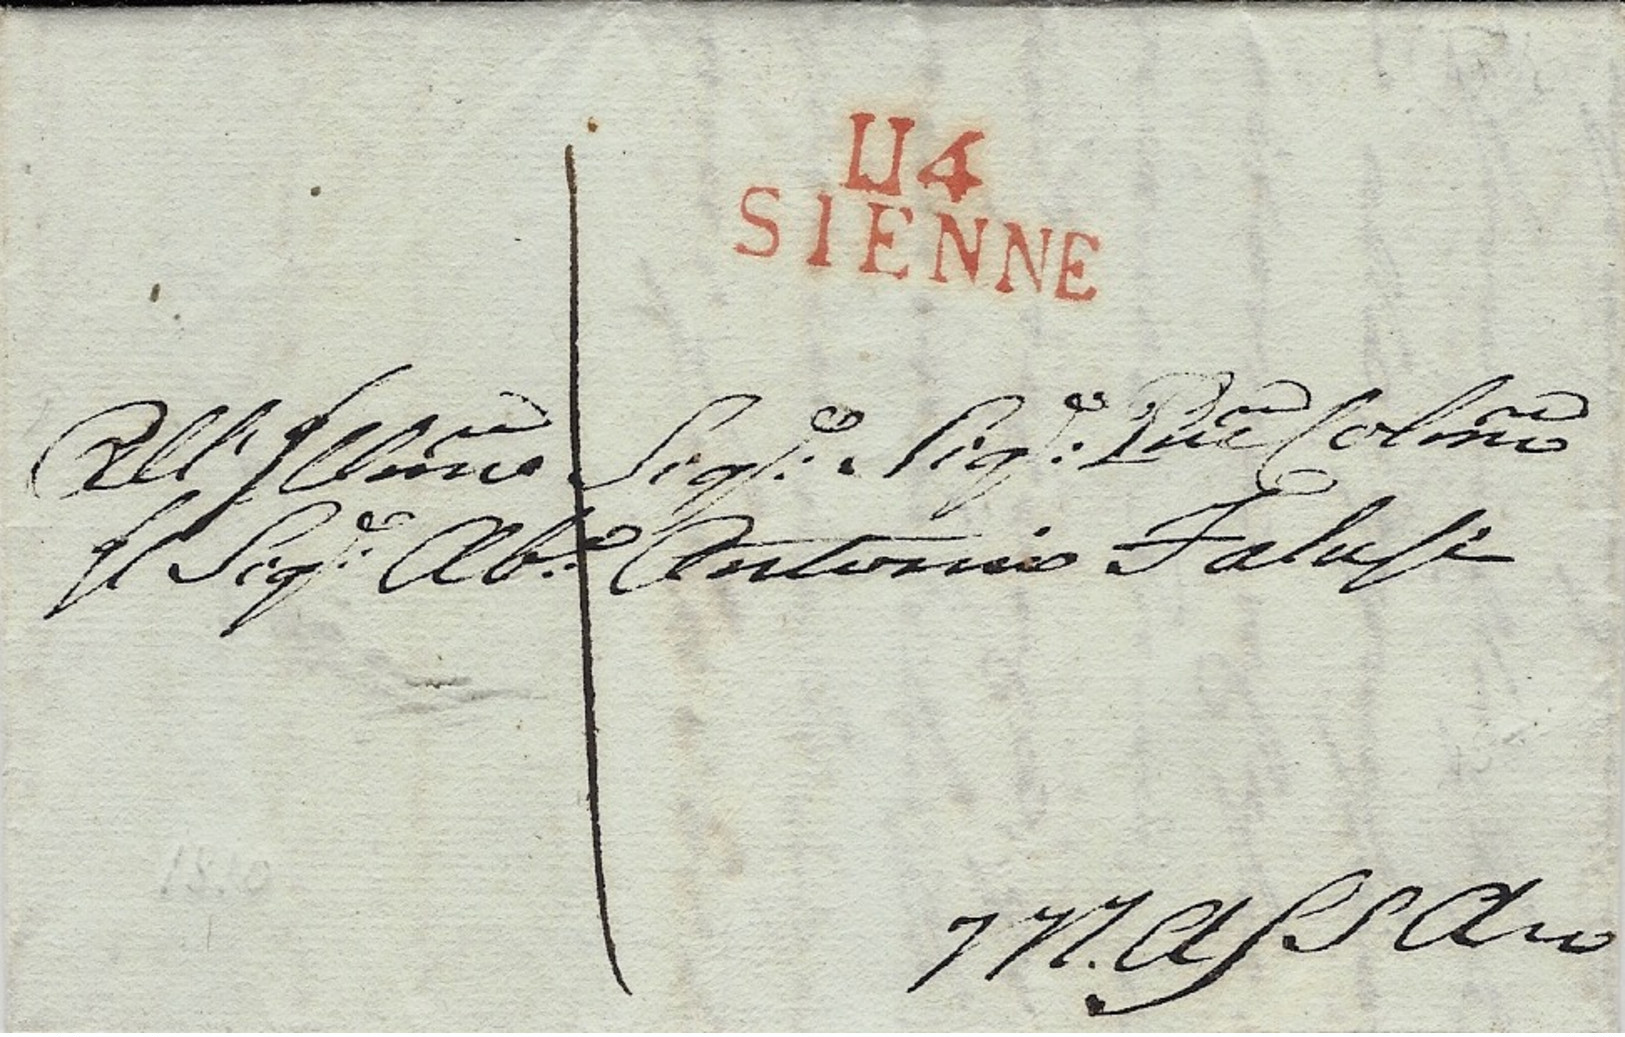 114
SIENNE
All' Illmo Sigr. Sigr. Prne Colmo
Il Sigr. Abe. Antonio Falusi
Massa
1810